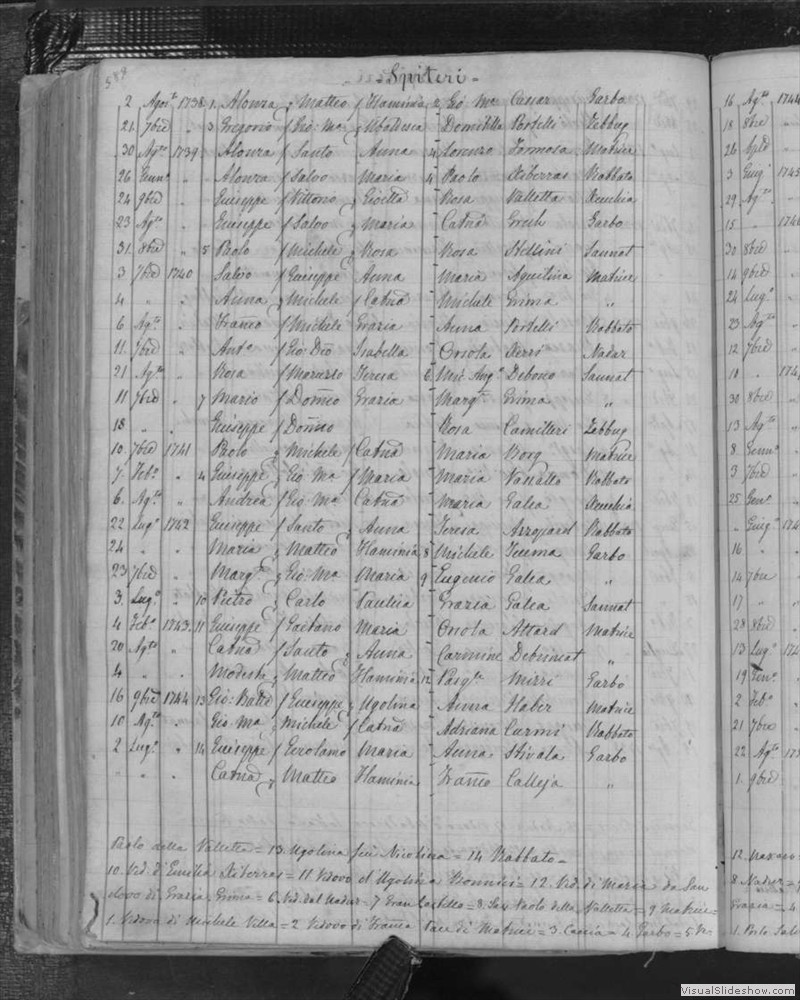 588
Spiteri
2 Agos.to 1738 1. Alonza / Matteo / Flaminia 2 Gio Ma Cassar Garbo
21. 7bre " 3 Gregorio / Gio: Ma / Ubaldesca Domitilla Portelli Zebbug
30 Ag.to 1739 Alonza / Santo Anna 4 Lorenzo Formosa Matrice
26 Genn.o " Alonza / Salvo Maria 4 Paolo Xiberras Rabbato
24 9bre " Giuseppe / Vittorio Gioetta Rosa Valletta Xeuchia
23 Ag.to " Giuseppe / Salvo Maria Catna Grech Garbo
31. 8bre " 5 Paolo / Michele Rosa Rosa Stellini Sannat
3 7bre 1740 Salvo / Giuseppe Anna Maria Aquilina Matrice
4 " " Anna Michele / Catna Michele Grima "
6 Ag.to " Franco / Michele Grazia Anna Portelli Rabbato
11. 7bre " Ant.o / Gio: Dio Isabella Orsola Xerri Nadur
21 Ag.to " Rosa / Maruzzo Teresa 6 Mic. Ang.o Debono Sannat
11 7bre " 7 Mario / Domco Grazia Marg.a Grima "
18 " " Giuseppe / Domco Rosa Camilleri Zebbug
10. 7bre 1741 Paolo Michele / Catna Maria Borg Matrice
7. Feb.o " 4 Giuseppe Gio Ma / Maria Maria Vassallo Rabbato
6. Ag.to " Andrea / Gio Ma Catna Maria Galea Xeuchia
22 Lug.o 1742 Giuseppe / Santo Anna Teresa Azzopard Rabbato
24 " " Maria Matteo Flaminia 8 Michele Teuma Garbo
23 7bre " Marg.a Gio: Ma Maria 9 Eugenio Galea "
3. Lug.o " 10 Pietro Carlo Paulica Grazia Galea Sannat
4 Feb.o 1743. 11 Giuseppe / Gaetano Maria Orsola Attard Matrice
20 Ag.to " Catna / Santo Anna Carmine Debrincat "
4 " " Modesta Matteo Flaminia 12 Pasq.le Mizzi Garbo
16 9bre 1744 13 Gio: Batte / Giuseppe Ugolina Anna Haber Matrice
10 Ag.to " Gio: Ma Michele / Catna Adriana Curmi Rabbato
2 Lug.o " 14 Giuseppe / Gerolamo Maria Anna Stivala Garbo
" " Catna Matteo Flaminia Franco Calleja "
Paolo della Valletta = 13. Ugolina fu Nicolina = 14 Rabbato =
10. Ved. di Emilia Xiberras = 11 Vedovo d' Ugolina Bonnici = 12. Ved. di Maria da San
dovo di Grazia Grima = 6. Vid. dal Nadur = 7 Gran Castello = 8. San Paolo della Valletta = 9 Matrice =
1. Vedova di Michele Villa = 2 Vedovo di Franca Pace di Matrice = 3. Caccia = 4 Garbo = 5 V-
16 Ag.to 1744
18 8bre
26 Aple
3 Giug.o 1745
29 Ag.to
15 " 1746
30 8bre
14 9bre
24 Lug.o
23 Ag.to
12 7bre
18 "
30 8bre
13 Ag.to
8 Genn.o
3 7bre
25 Gen.o
" Giug.o
16 "
14 7bre
17 "
28 8bre
13 Lug.o
19 Gen.o
2 Feb.o
21 7bre
22 Ag.to
1. 9bre
8. Nadur =
Grazia = 4.
VisualSlideshow.com